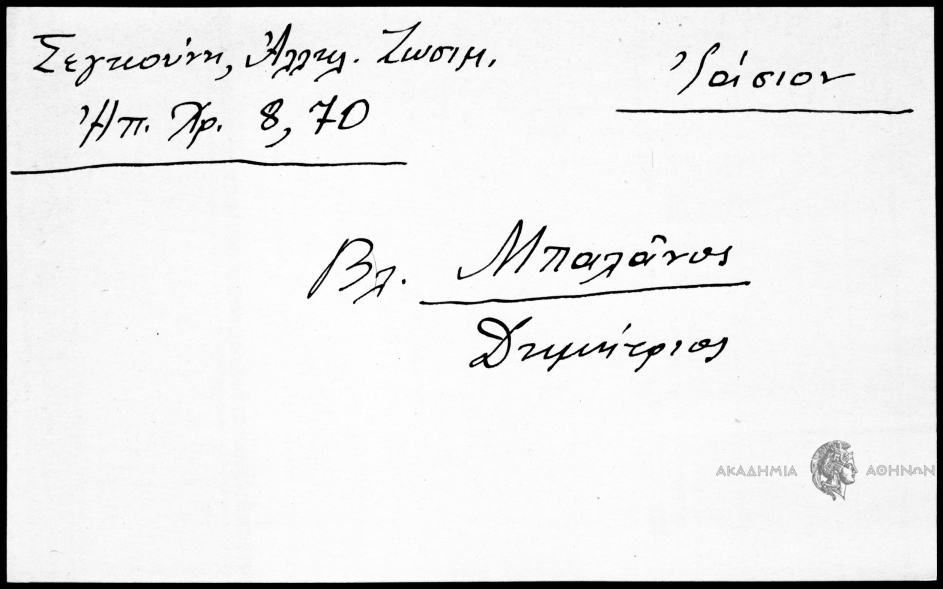 Σεγκούνη, Ἀλλτλ. Ζωσιμ.
Ἠπ. Χρ. 8, 70
Ἰάσιον
Βλ. Μπαλᾶνος
Δημήτριος
ΑΚΑΔΗΜΙΑ ΑΘΗΝΩΝ